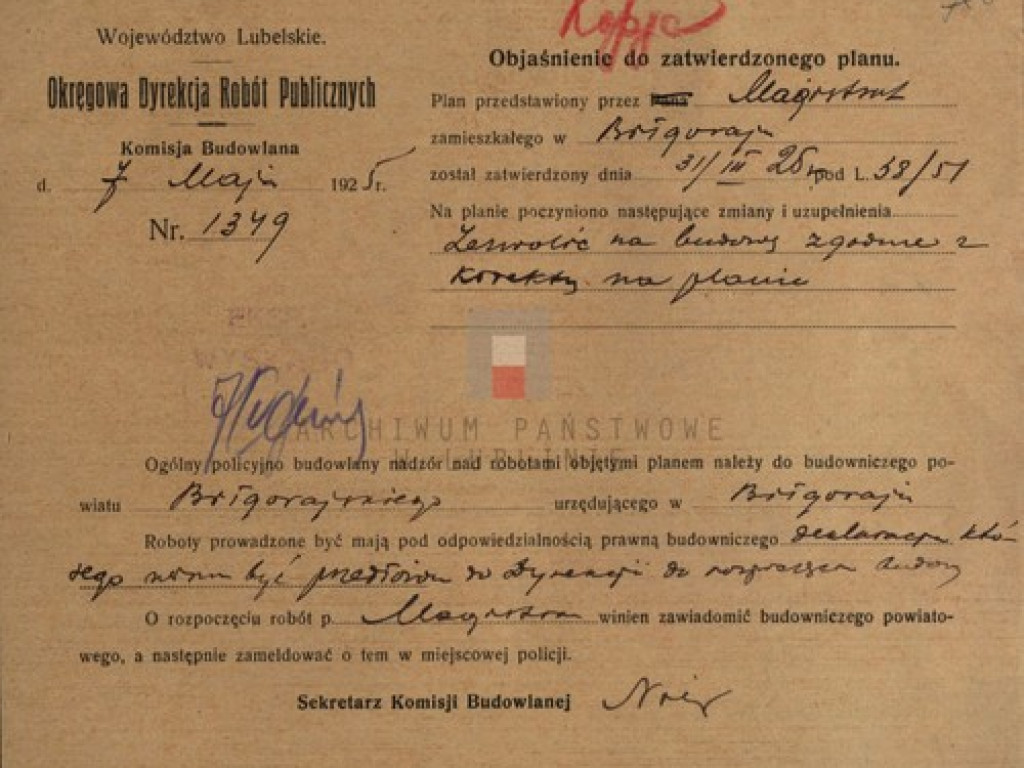 Kopja
Województwo Lubelskie.
Okręgowa Dyrekcja Robót Publicznych
Komisja Budowlana
d. 7 Maja 1925 r.
Nr. 1349
Objaśnienie do zatwierdzonego planu.
Plan przedstawiony przez Magistrat
zamieszkałego w Biłgoraju
został zatwierdzony dnia 31/III 25 r. pod L. 58/51
Na planie poczyniono następujące zmiany i uzupełnienia
Zezwolić na budowę zgodnie z
korektą na planie
ARCHIWUM PAŃSTWOWE
W LUBLINIE
Ogólny policyjno budowlany nadzór nad robotami objętymi planem należy do budowniczego po-
wiatu Biłgorajskiego urzędującego w Biłgoraju
Roboty prowadzone być mają pod odpowiedzialnością prawną budowniczego deklaracja któ-
rego winna być przedłożona do Dyrekcji do rozpoczęcia budowy
O rozpoczęciu robót p. Magistrat winien zawiadomić budowniczego powiato-
wego, a następnie zameldować o tem w miejscowej policji.
Sekretarz Komisji Budowlanej